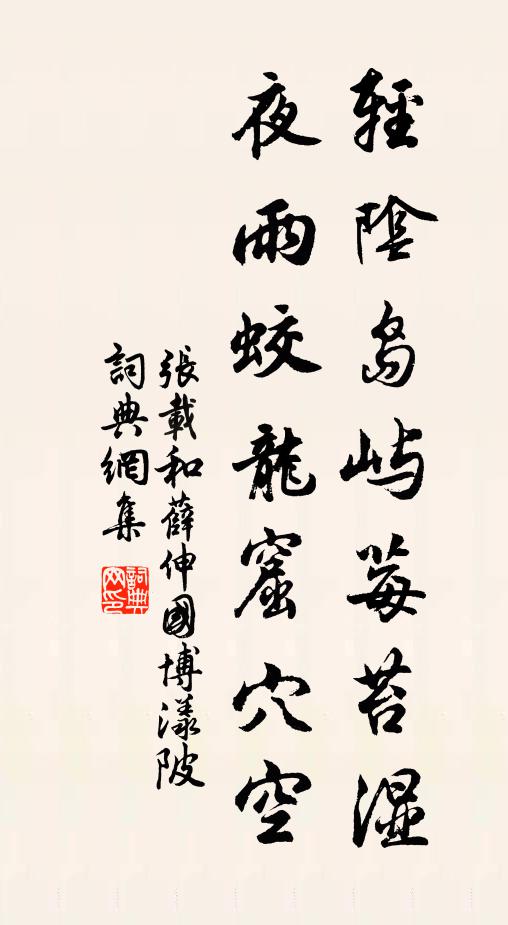 輕陰島屿莓苔湿
夜雨蛟龍窟穴空
張載和薛伸國博漾陂
詞典網集
詞典网印